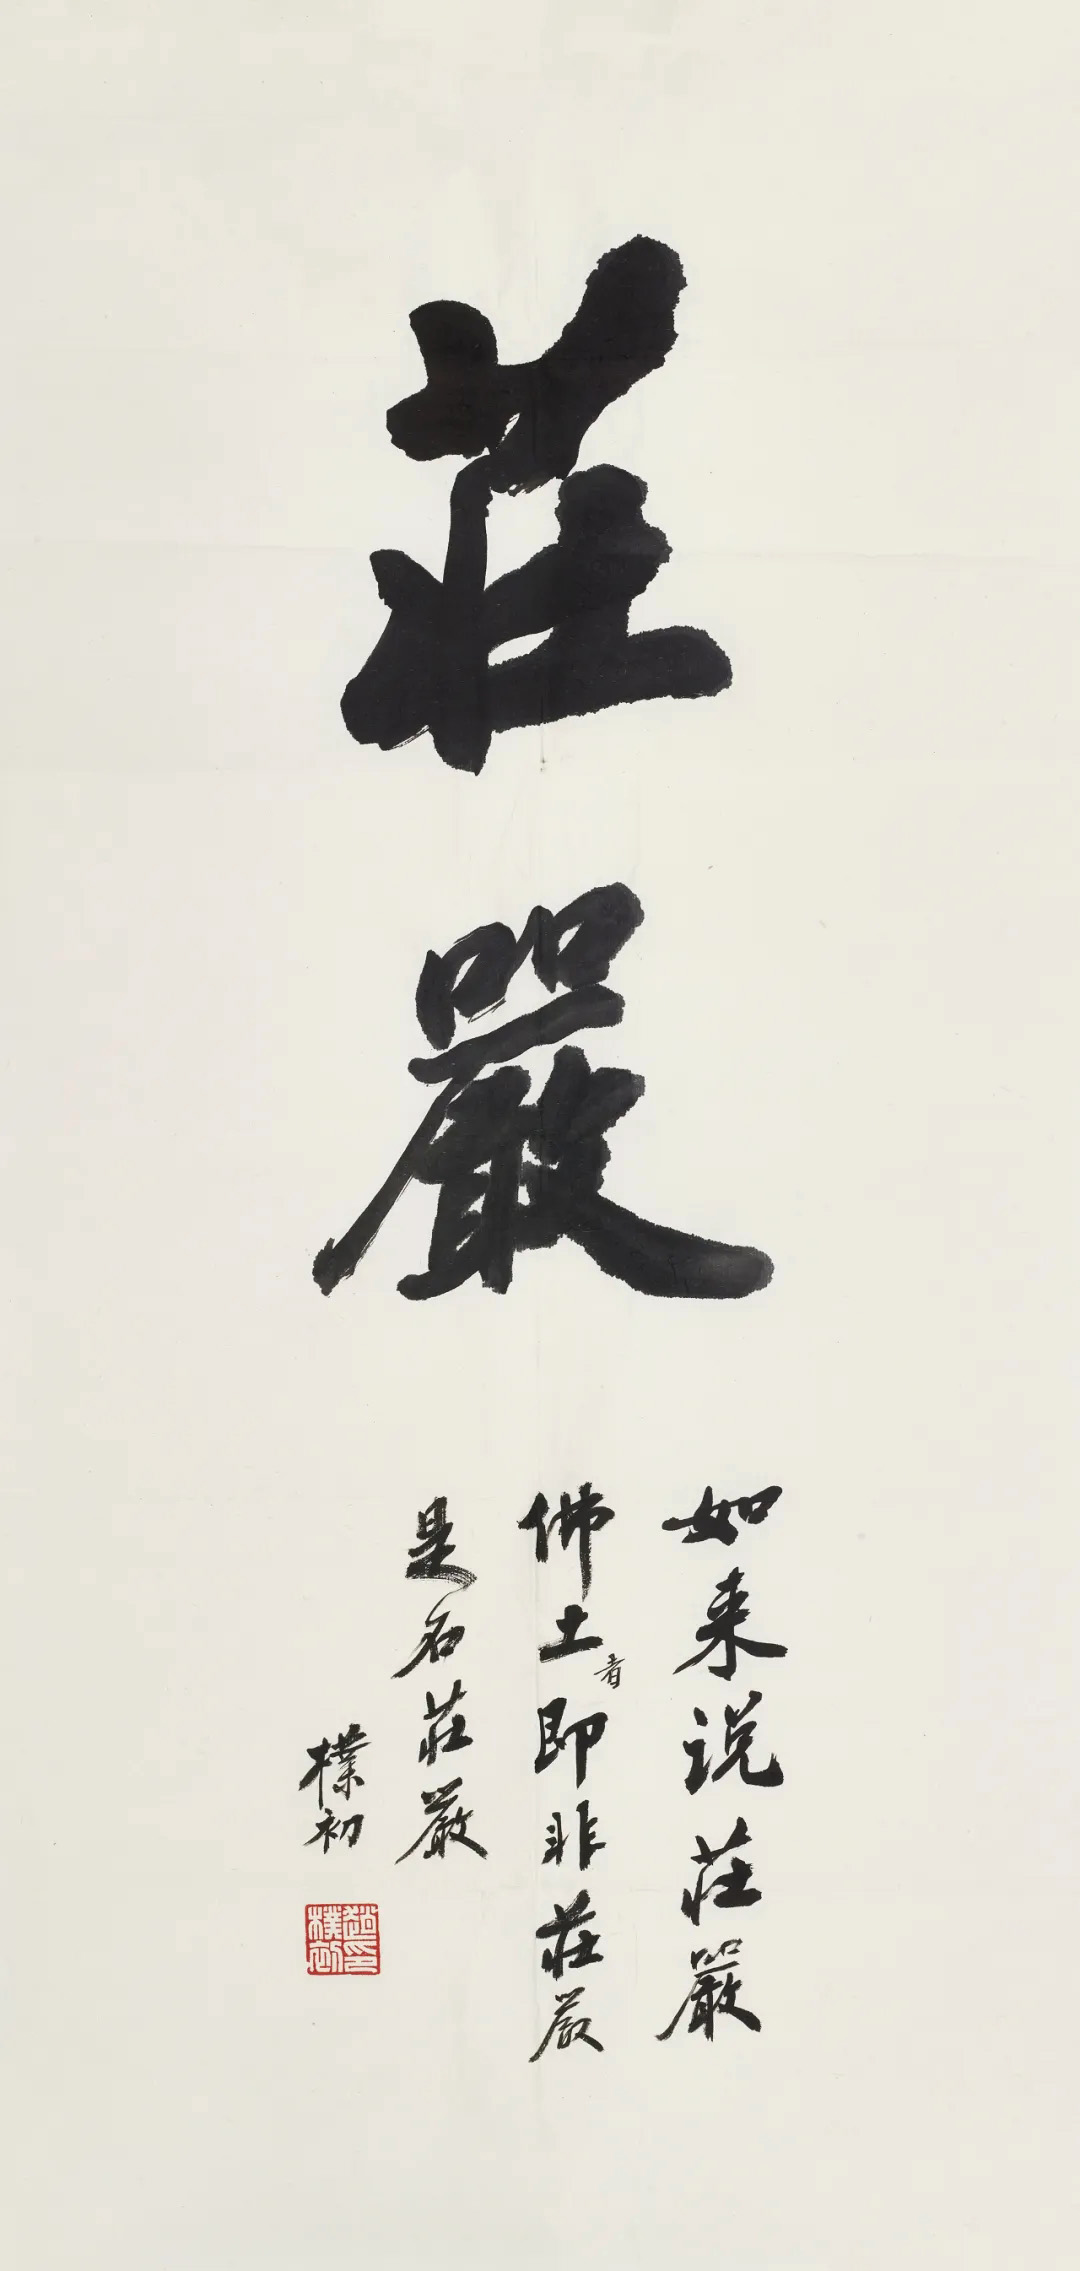 莊嚴
如来说莊嚴
佛土者即非莊嚴
是名莊嚴
樸初
趙印
樸初